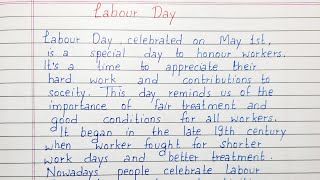 Labour Day
Labour Day, celebrated on May 1st,
is a special day to honour workers.
It's a time to appreciate their
hard work and contributions to
soceity. This day reminds us of the
importance of fair treatment and
good conditions for all workers.
It began in the late 19th century
when worker fought for shorter
work days and better treatment.
Nowadays people celebrate Labour